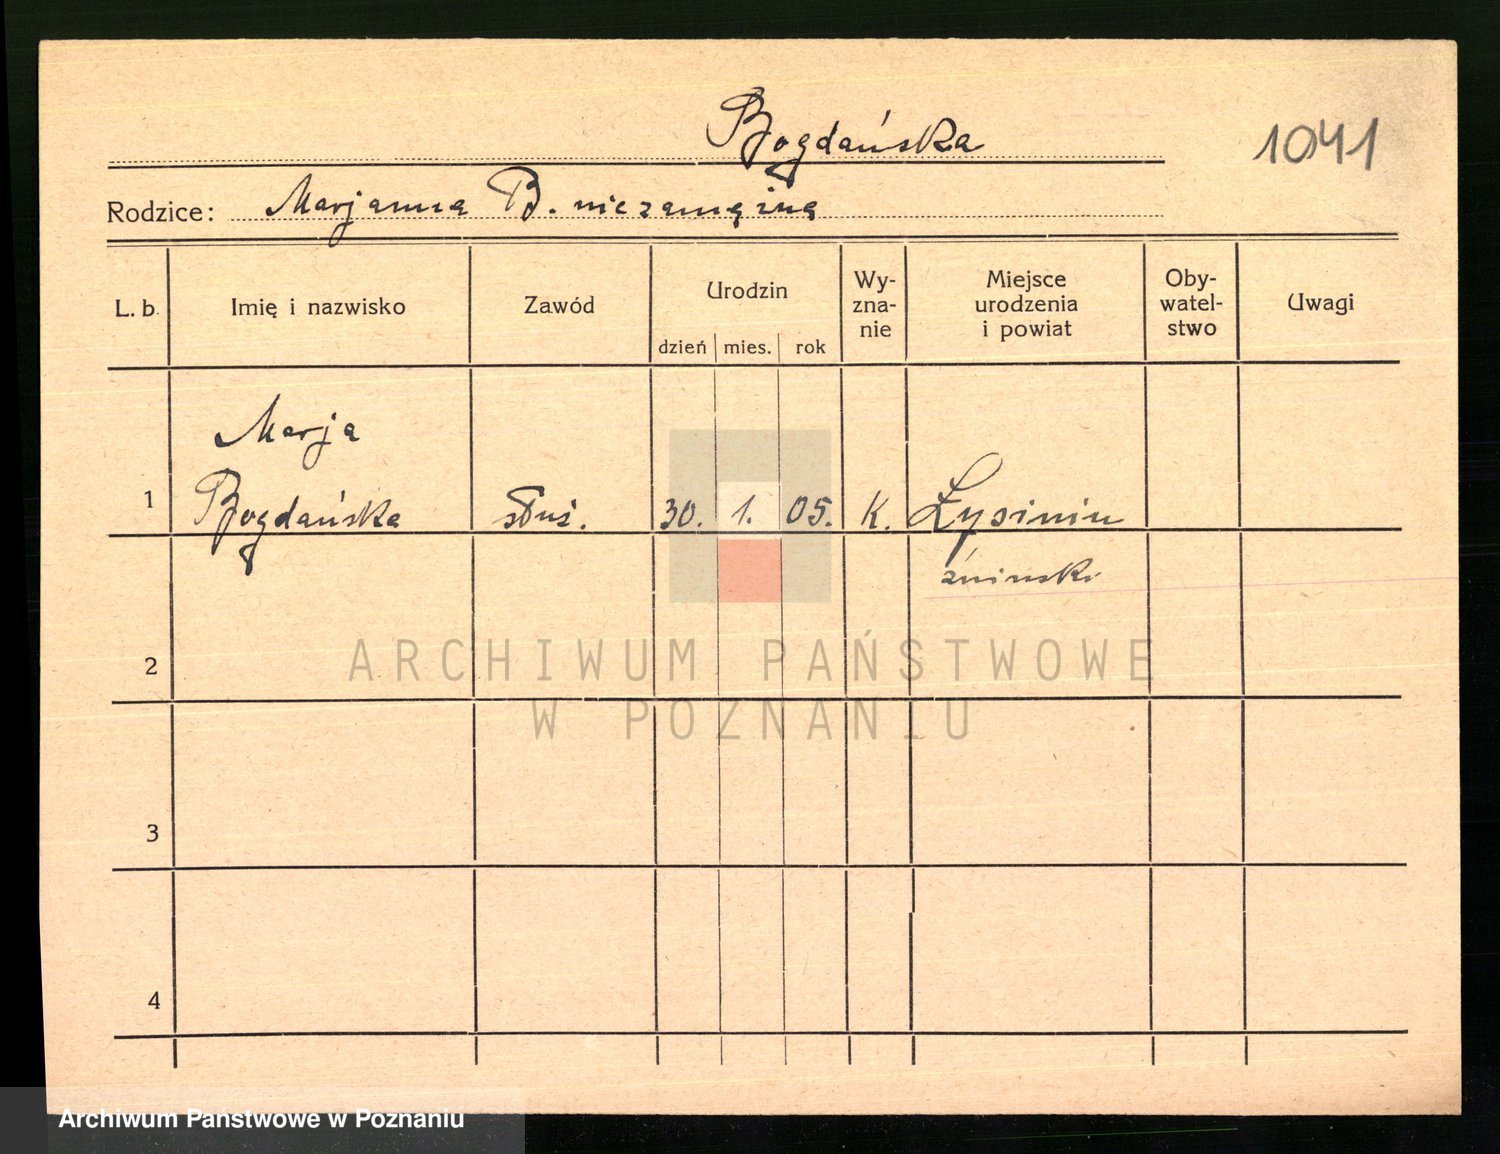 Bogdańska
1041
Rodzice: Marjanna B. niezamężna
L. b. Imię i nazwisko Zawód Urodzin Wy-zna-nie Miejsce urodzenia i powiat Oby-watel-stwo Uwagi
dzień mies. rok
Marja
1 Bogdańska służ. 30. 1. 05. K. Łysinin
żniński
2
ARCHIWUM PAŃSTWOWE
W POZNANIU
3
4
Archiwum Państwowe w Poznaniu